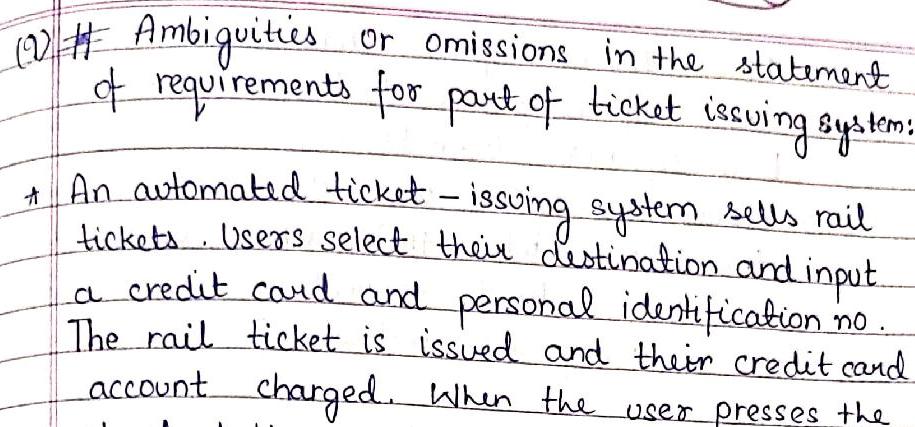 (2) # Ambiguities or omissions in the statement
of requirements for part of ticket issuing system:
* An automated ticket - issuing system sells rail
tickets. Users select their destination and input
a credit card and personal identification no.
The rail ticket is issued and their credit card
account charged. When the user presses the